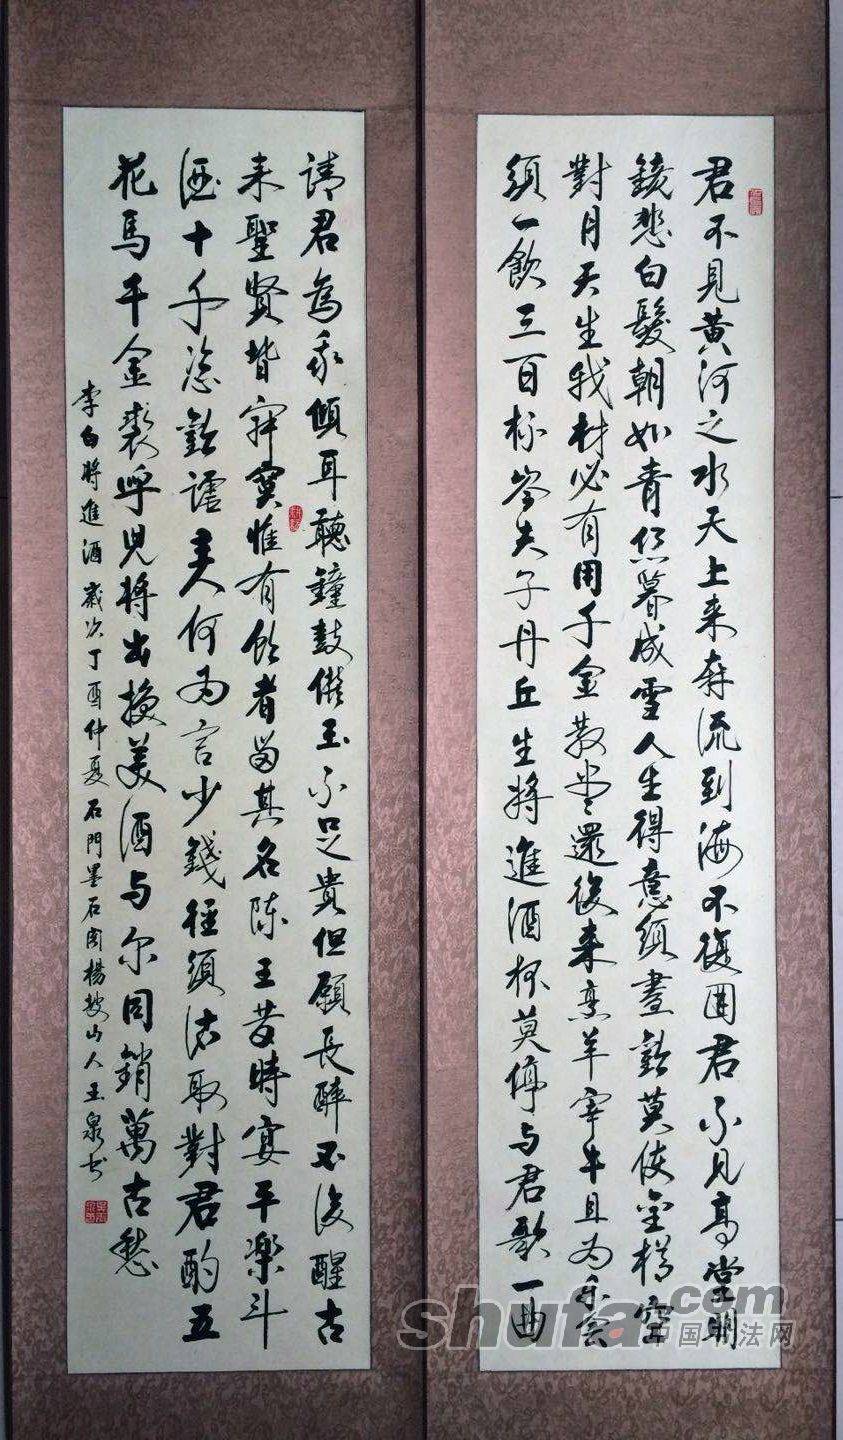 君不見黄河之水天上来奔流到海不復回君不見高堂明
鏡悲白髮朝如青丝暮成雪人生得意須盡歡莫使金樽空
對月天生我材必有用千金散盡還復来烹羊宰牛且为樂會
須一飲三百杯岑夫子丹丘生將進酒杯莫停与君歌一曲
請君為我傾耳聽鐘鼓饌玉不足貴但願長醉不復醒古
来聖賢皆寂寞惟有飲者留其名陳王昔時宴平樂斗
酒十千恣歡謔主人何为言少錢徑須沽取對君酌五
花馬千金裘呼兒將出換美酒与尔同銷萬古愁
李白將進酒歲次丁酉仲夏石門墨石閣楊坡山人玉泉书
shufa.com
中国书法网